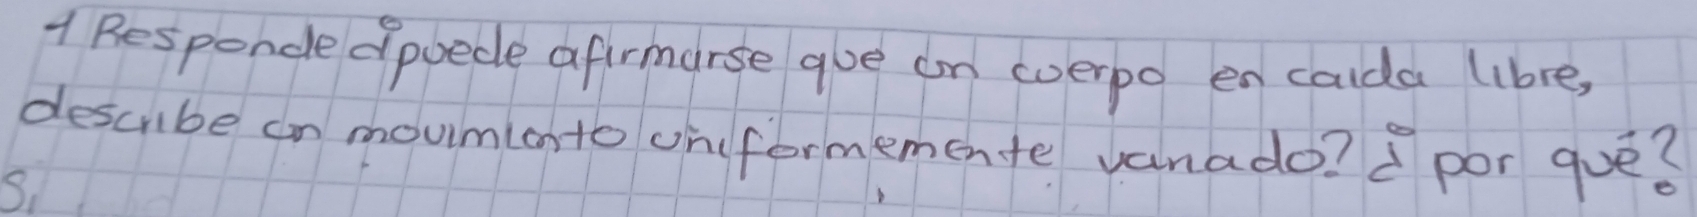 1 Responde ¿puede afirmarse que un cuerpo en caida libre,
describe un movimiento uniformemente variado? ¿ por qué?
Si